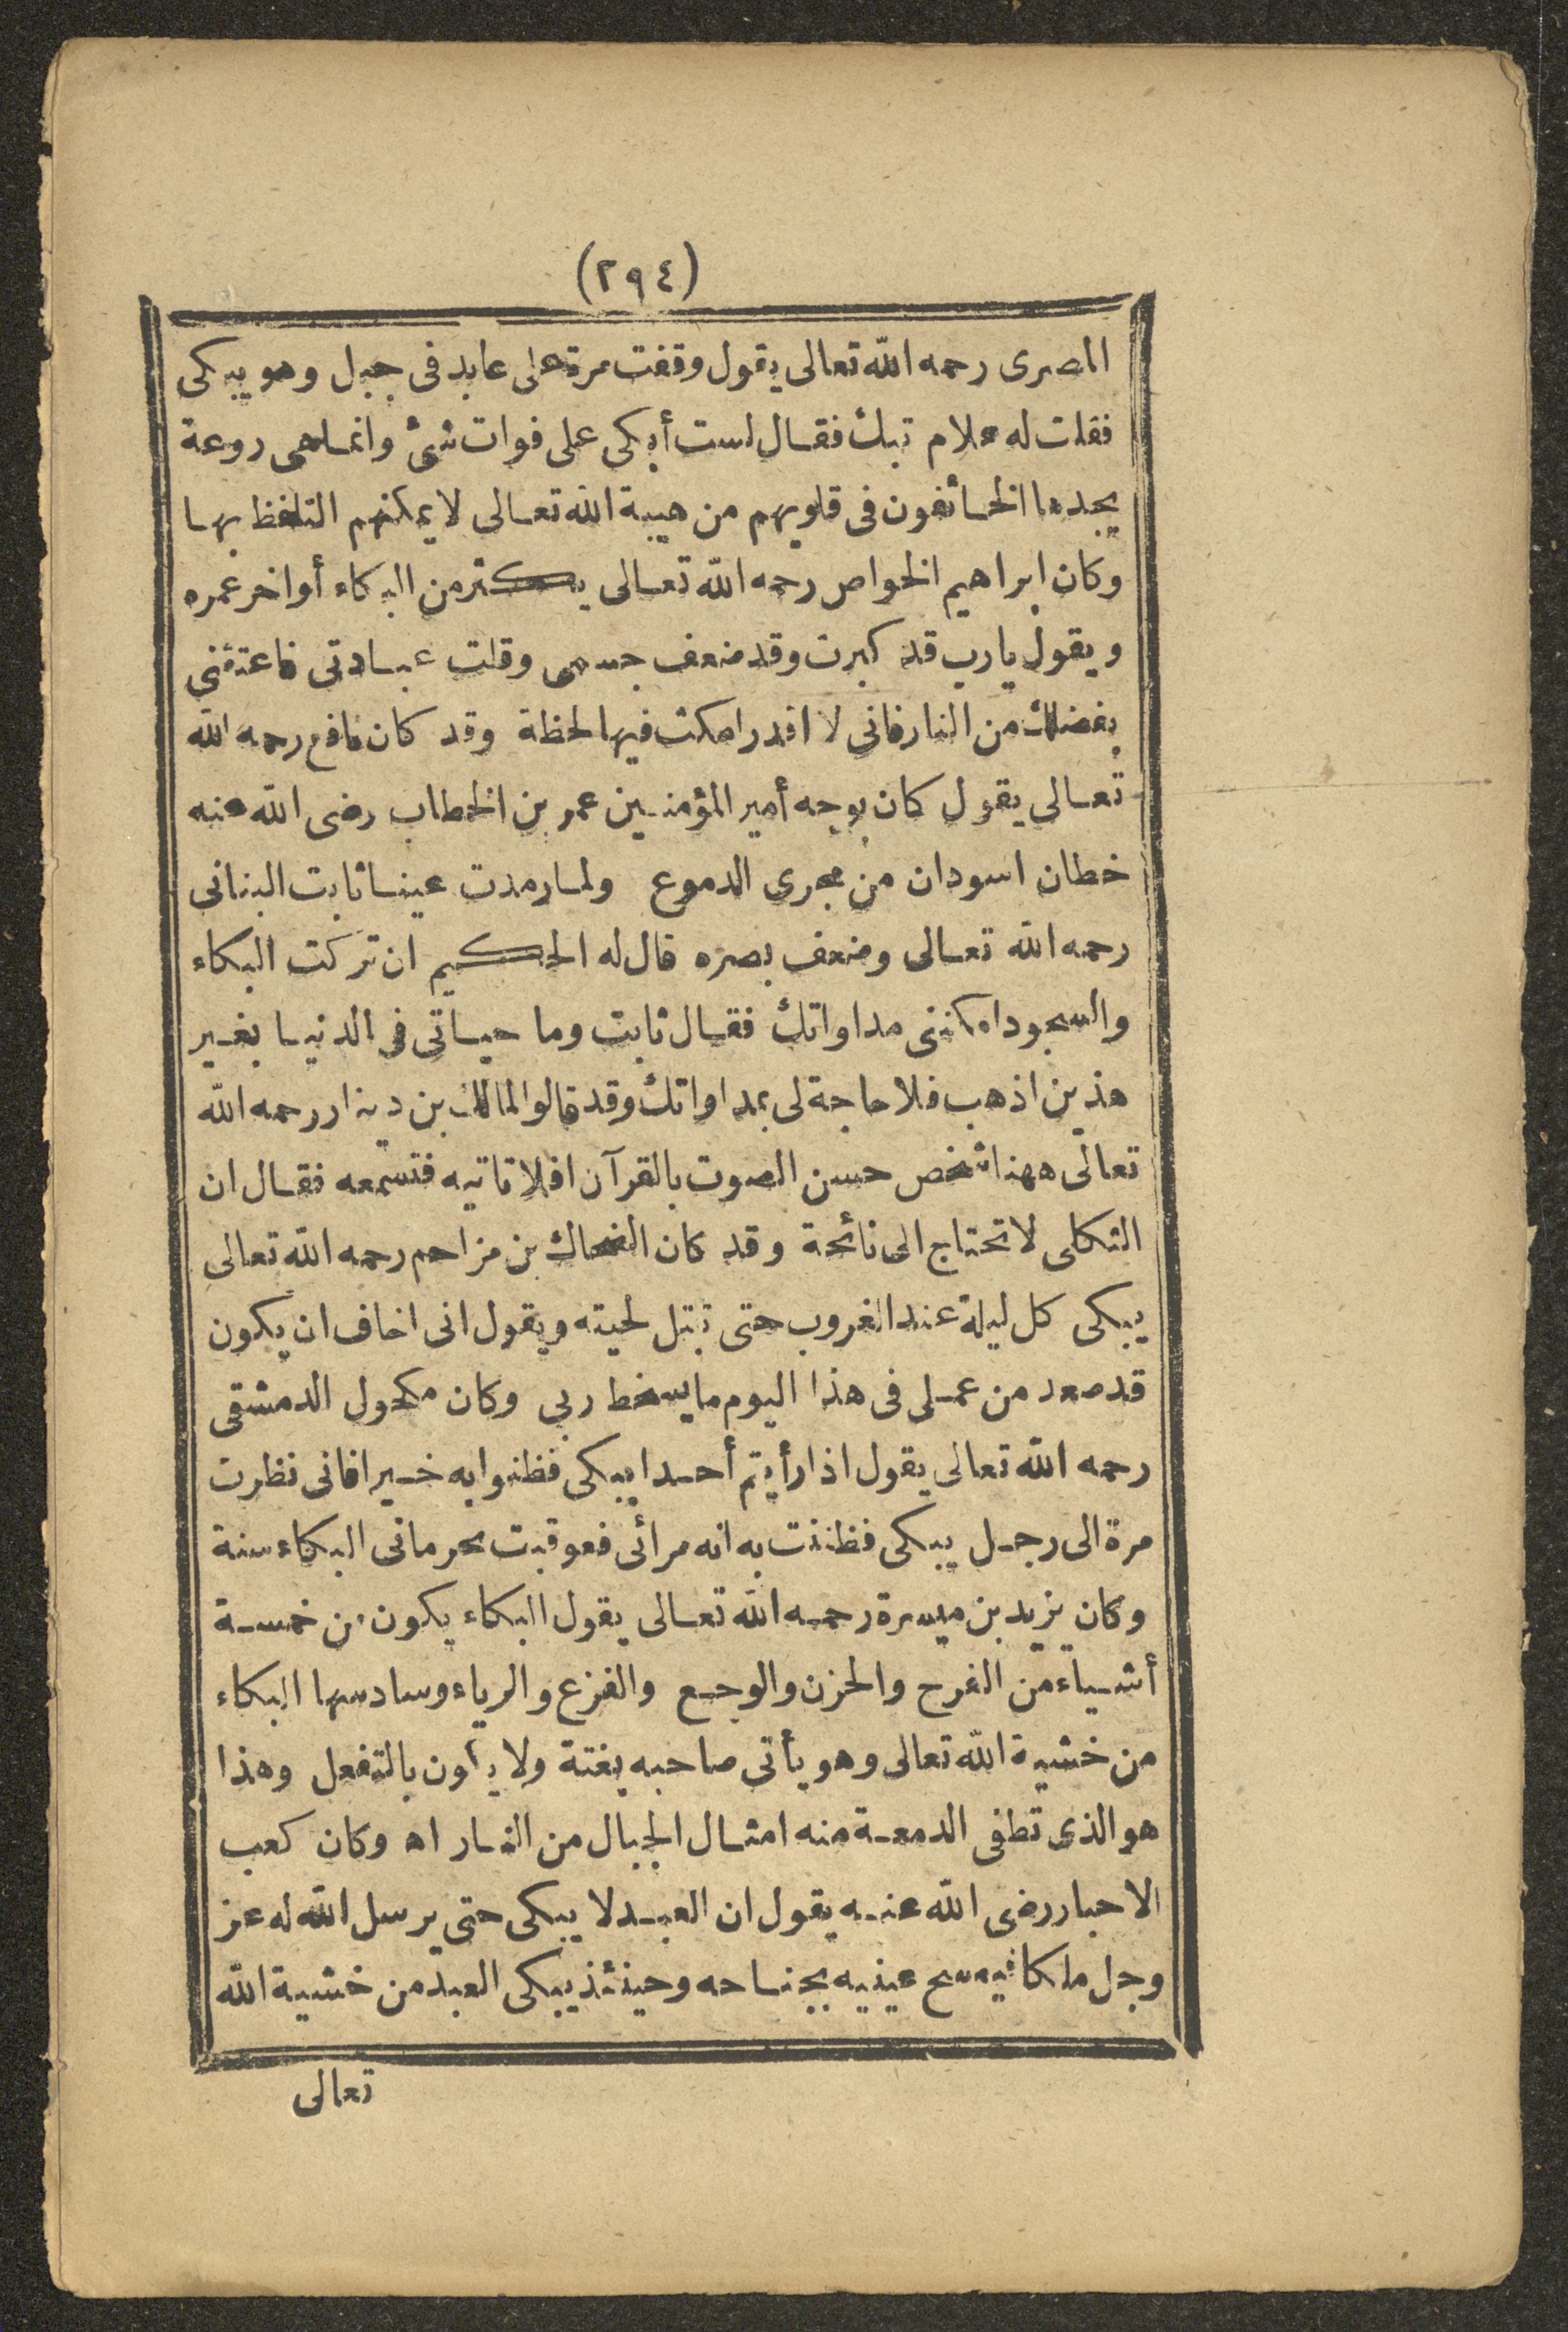 (٢٩٤)
المصرى رحمه الله تعالى يقول وقفت مرة على عابد فى جبل وهو يبكى
فقلت له علام تبك فقال لست أبكى على فوات شئ وانما هى روعة
يجدها الخائفون فى قلوبهم من هيبة الله تعالى لا يمكنهم التلفظ بها
وكان ابراهيم الخواص رحمه الله تعالى يكثر من البكاء أواخر عمره
ويقول يارب قد كبرت وقد ضعف جسمى وقلت عبادتى فاعتقنى
بفضلك من النار فانى لا اقدر امكث فيها لحظة وقد كان نافع رحمه الله
تعالى يقول كان بوجه أمير المؤمنين عمر بن الخطاب رضى الله عنه
خطان اسودان من مجرى الدموع ولما رمدت عينا ثابت البنانى
رحمه الله تعالى وضعف بصره قال له الحكيم ان تركت البكاء
والسجود امكننى مداواتك فقال ثابت وما حياتى فى الدنيا بغير
هذين اذهب فلا حاجة لى بمداواتك وقد قالوا لمالك بن دينار رحمه الله
تعالى ههنا شخص حسن الصوت بالقرآن افلا تاتيه فتسمعه فقال ان
الثكلى لا تحتاج الى نائحة وقد كان الضحاك بن مزاحم رحمه الله تعالى
يبكى كل ليلة عند الغروب حتى تبتل لحيته ويقول انى اخاف ان يكون
قد صعد من عملى فى هذا اليوم ما يسخط ربى وكان مكحول الدمشقى
رحمه الله تعالى يقول اذا رأيتم أحدا يبكى فظنوا به خيرا فانى نظرت
مرة الى رجل يبكى فظننت به انه مرائى فعوقبت بحرمانى البكاء سنة
وكان يزيد بن ميسرة رحمه الله تعالى يقول البكاء يكون من خمسة
أشياء من الفرح والحزن والوجع والفزع والرياء وسادسها البكاء
من خشية الله تعالى وهو يأتى صاحبه بغتة ولا يكون بالتفعل وهذا
هو الذى تطفى الدمعة منه امثال الجبال من النار اه وكان كعب
الاحبار رضى الله عنه يقول ان العبد لا يبكى حتى يرسل الله له عز
وجل ملكا فيمسح عينيه بجناحه وحينئذ يبكى العبد من خشية الله
تعالى